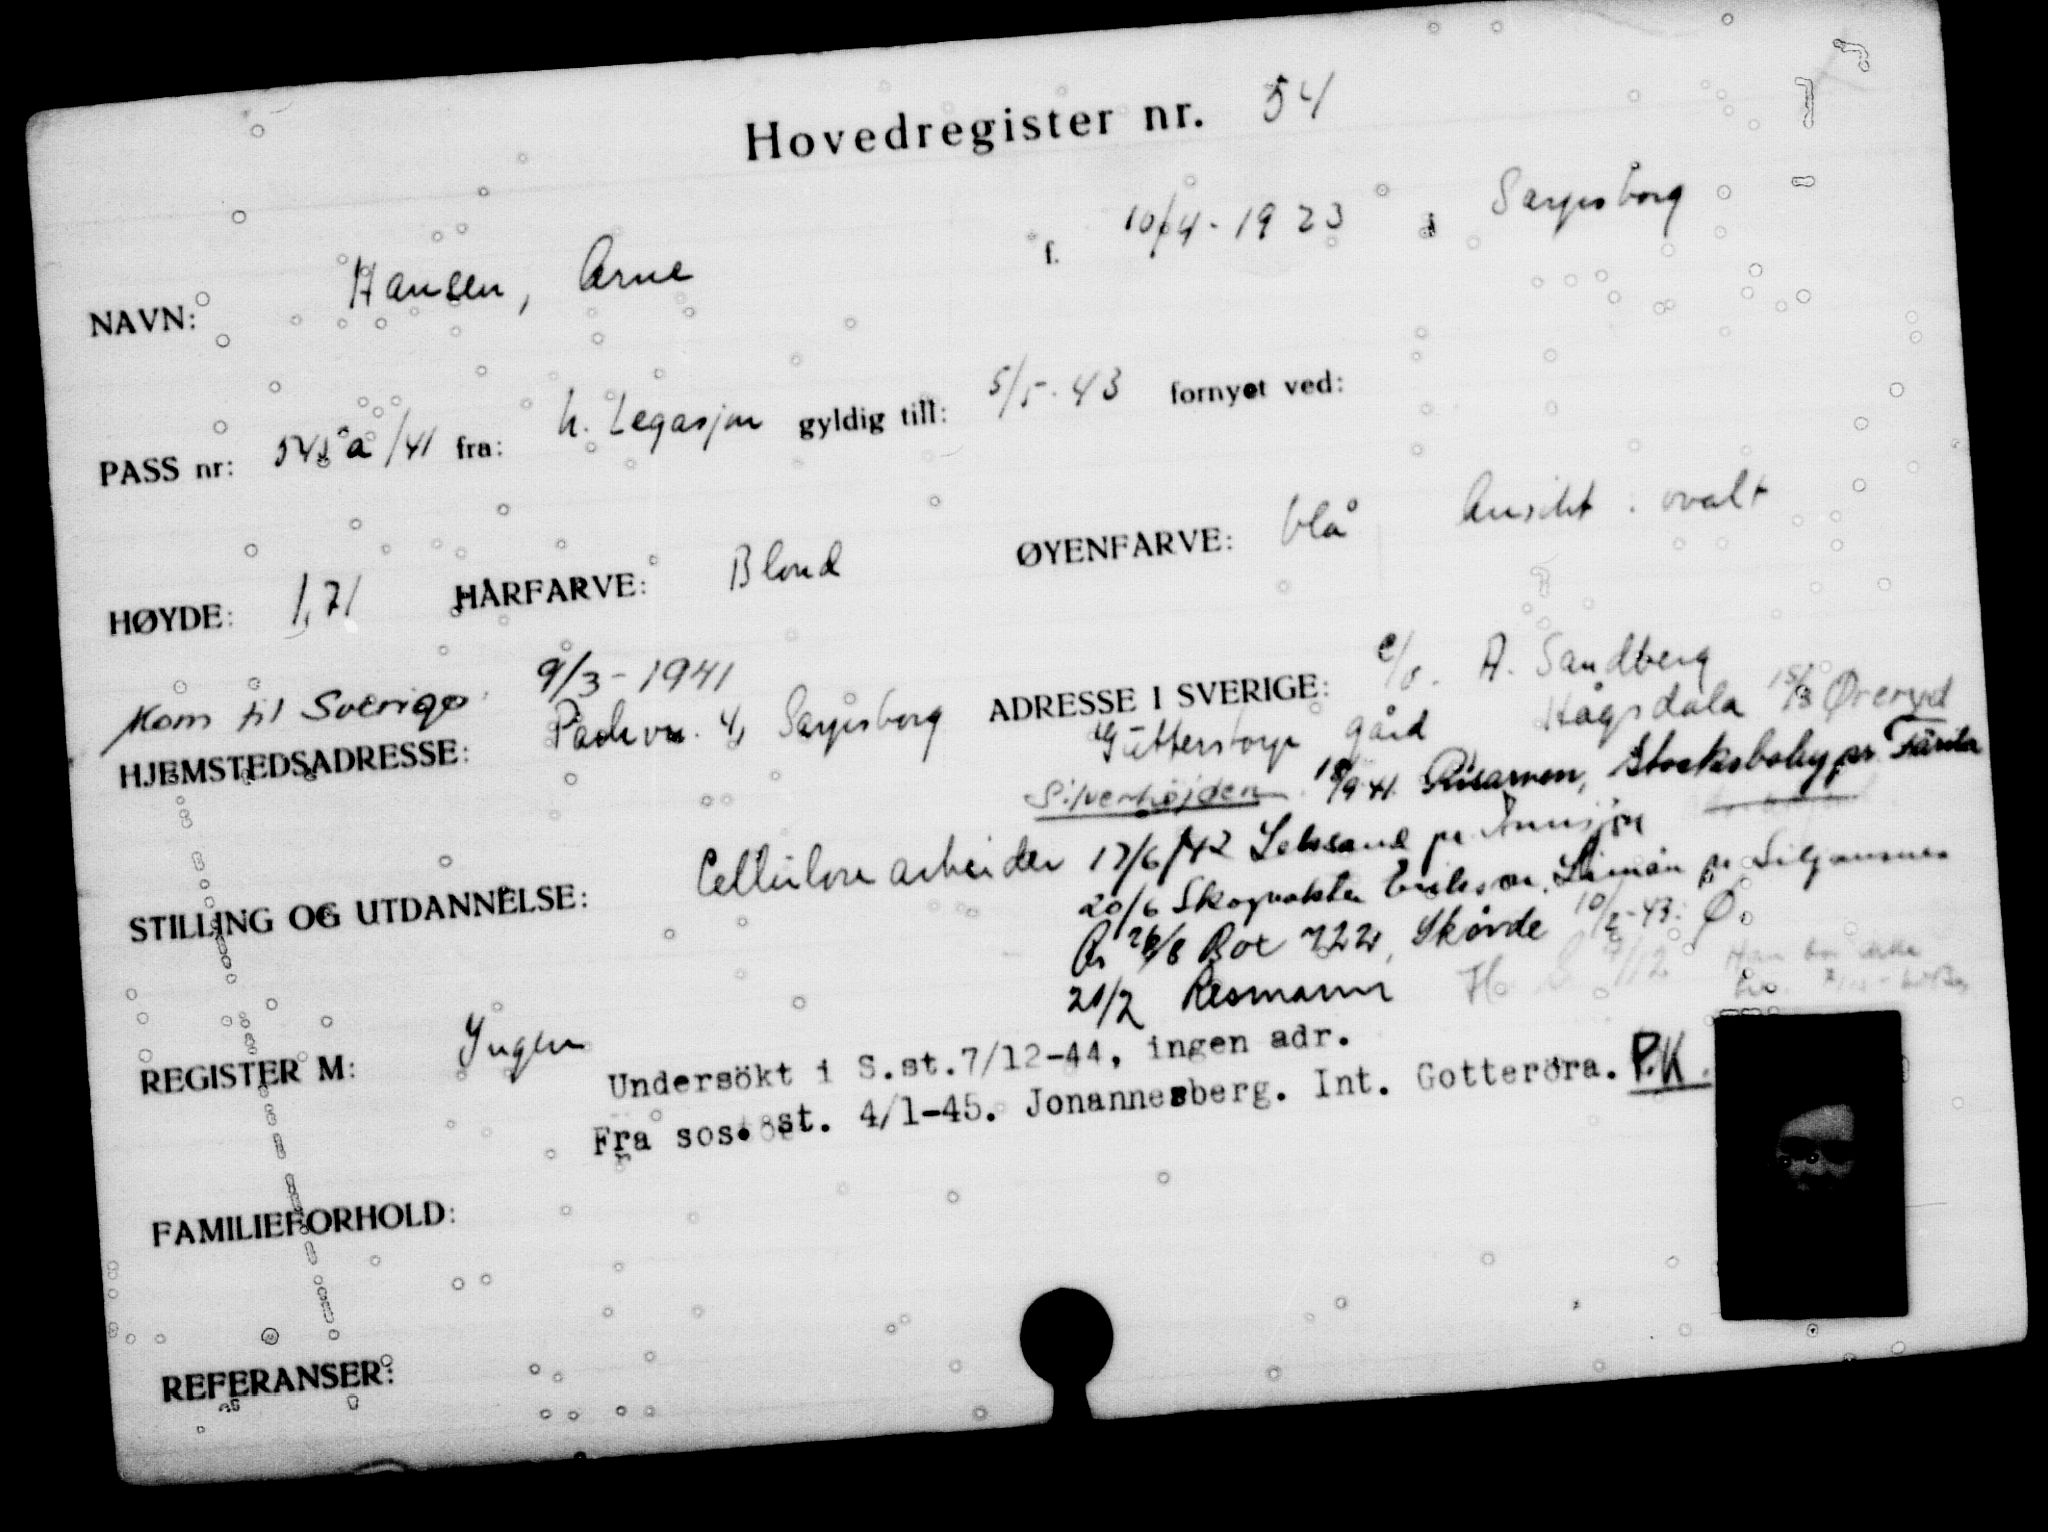 Hovedregister nr. 54
NAVN: Hansen, Arne f. 10/4-1923 i Sarpsborg
PASS nr: 548a/41 fra: h. Legasjon gyldig till: 5/5-43 fornyet ved:
HØYDE: 1,71 HÅRFARVE: Blond ØYENFARVE: blå Ansikt: ovalt
Kom til Sverige 9/3-1941
HJEMSTEDSADRESSE: 4, Sarpsborg
ADRESSE I SVERIGE: c/o. A. Sandberg
gård Hågsdala Øreryd
Silverhöjden 18/9 41
STILLING OG UTDANNELSE: Cellulosearbeider
17/6/42 Leksand pr
20/6 Eriksson, Limån pr Siljansnäs
26/8 Box 722, Skövde 10/2-43: Ø.
20/2
REGISTER M: Ingen
Undersökt i S.st.7/12-44, ingen adr.
Fra sos. st. 4/1-45. Jonannesberg. Int. Gotteröra. P.K.
FAMILIEFORHOLD:
REFERANSER: